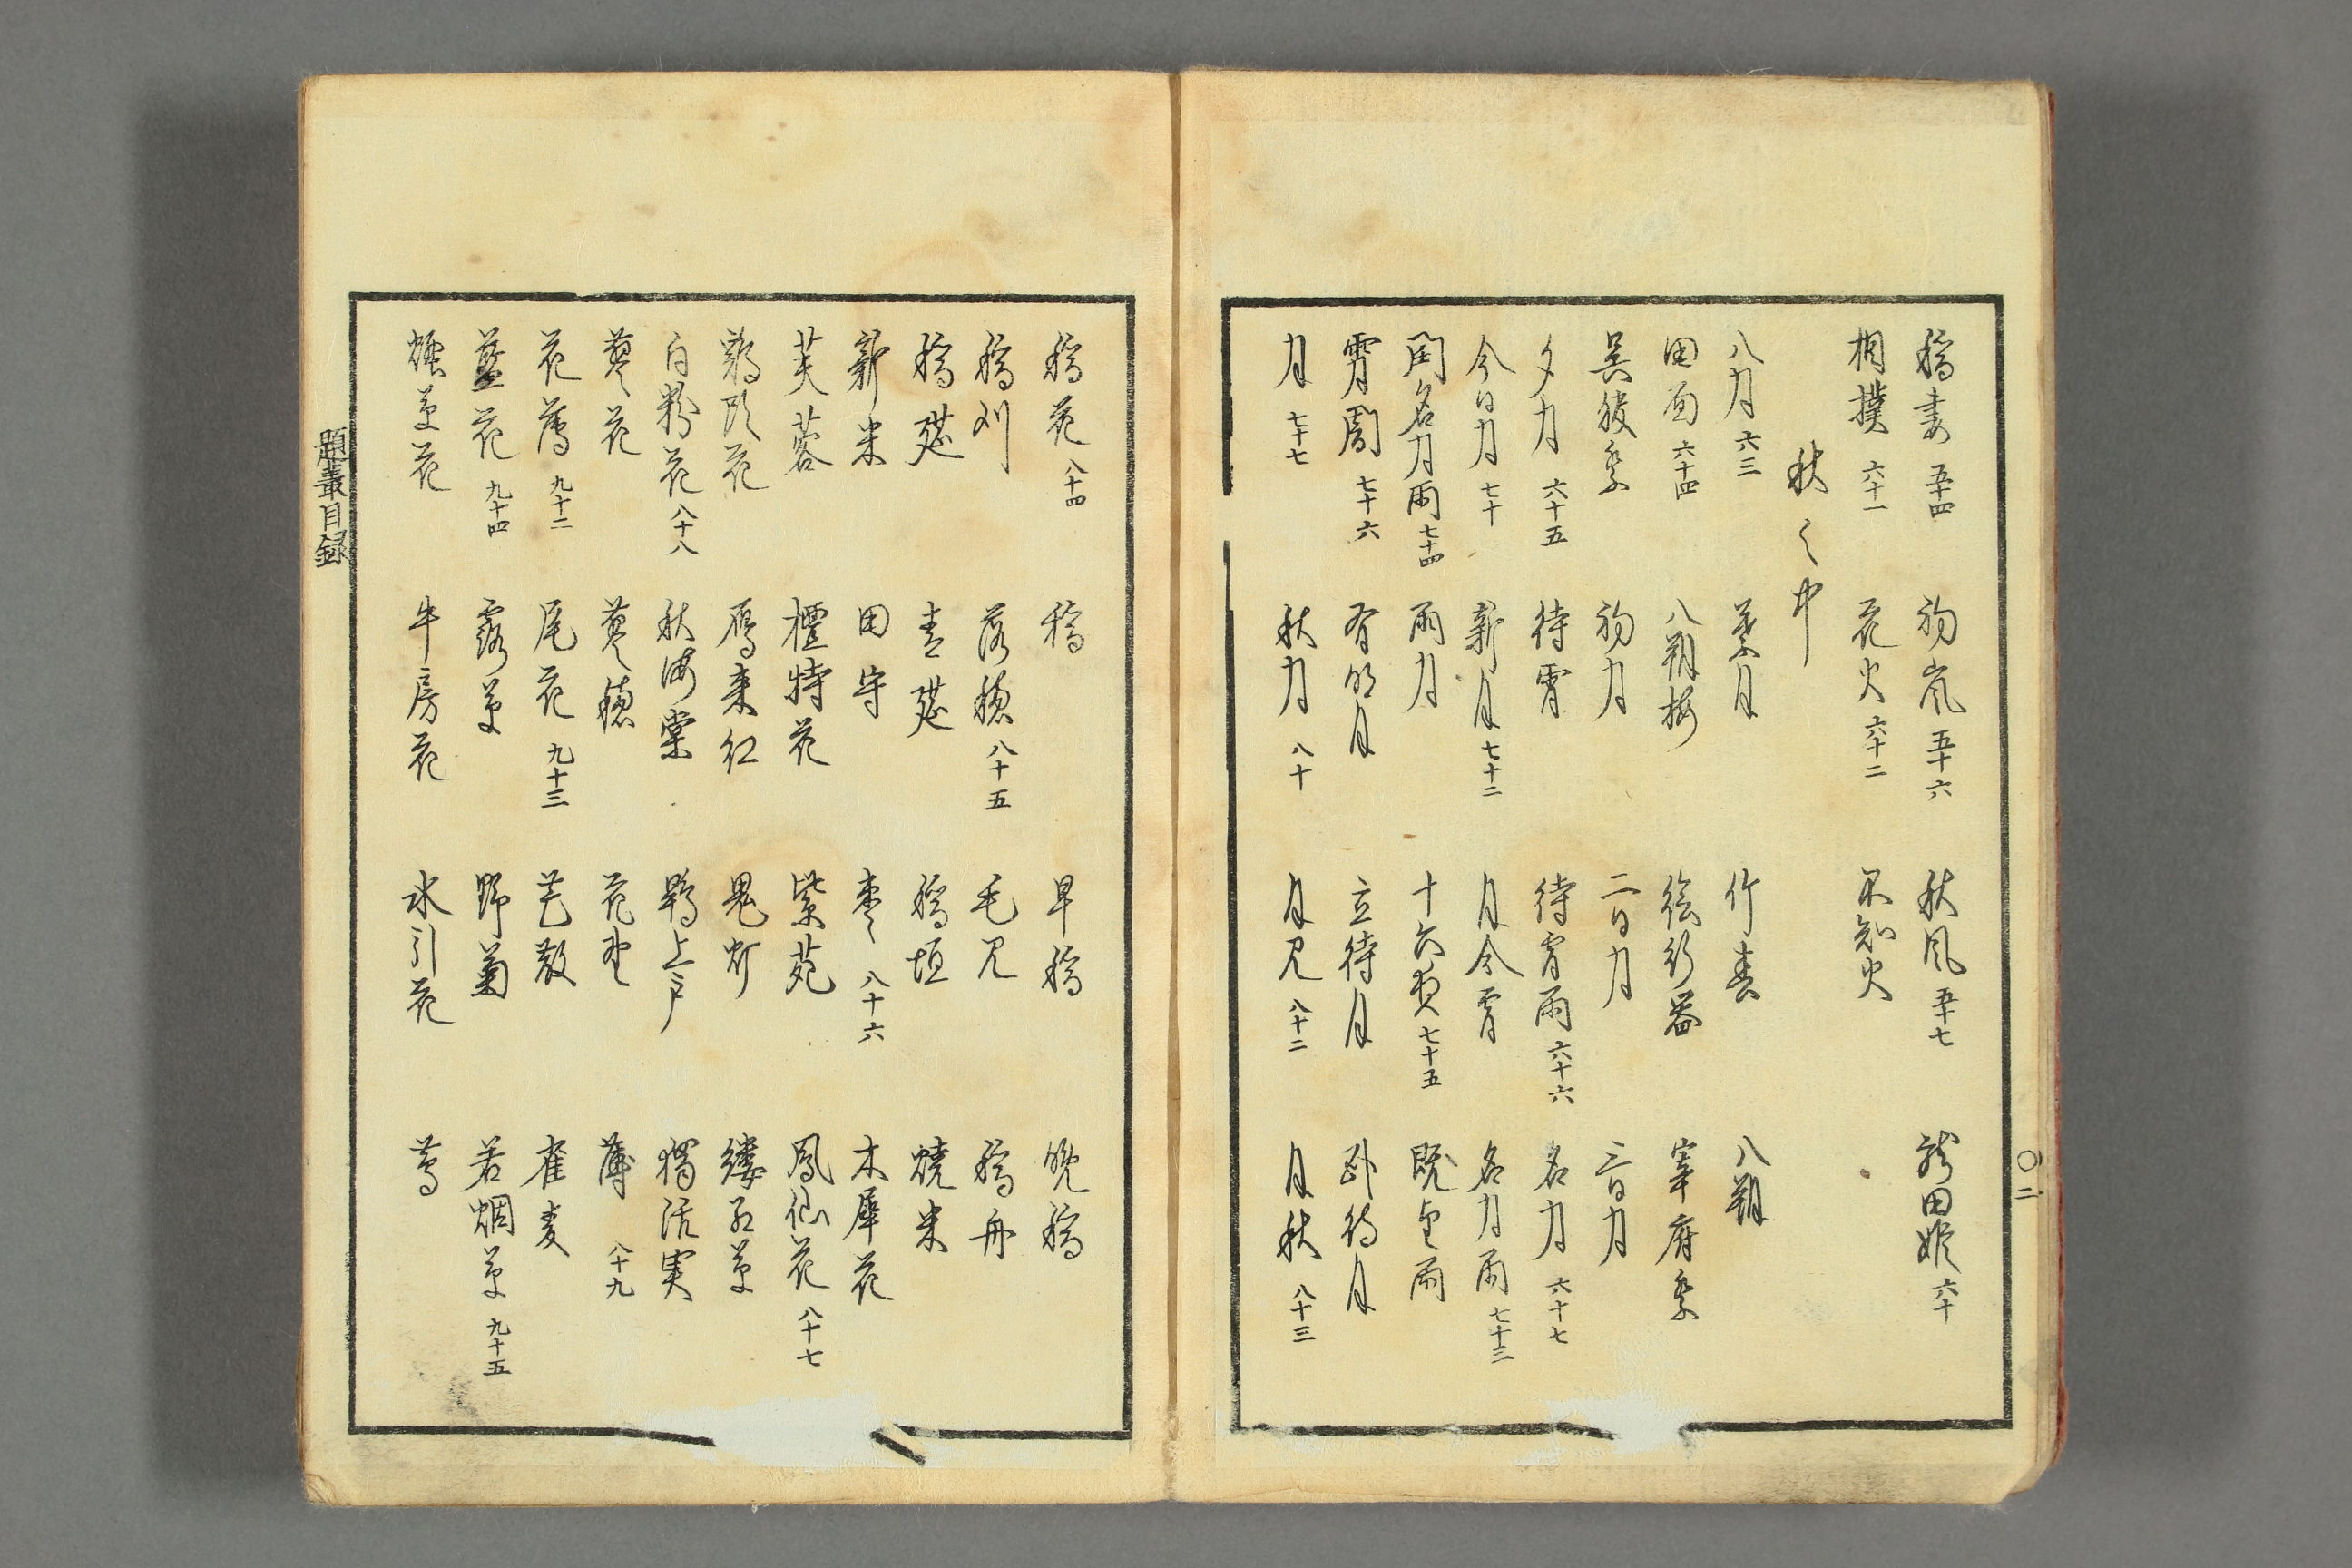 稲妻 五十四 初嵐 五十六 秋風 五十七 龍田姫 六十
相撲 六十一 花火 六十二 不知火
秋之中
八月 六三 葉月 竹春 八朔
田面 六十四 八朔梅 絵行器 宰府祭
呉服祭 初月 二日月 三日月
夕月 六十五 待宵 待宵雨 六十六 名月 六十七
今日月 七十 新月 七十二 月今宵 名月雨 七十三
閏名月雨 七十四 雨月 十六夜 七十五 既望雨
宵闇 七十六 有明月 立待月 臥待月
月 七十七 秋月 八十 月見 八十二 月秋 八十三
〇二
稲花 八十四 稲 早稲 晩稲
稲刈 落穂 八十五 毛見 稲舟
稲莚 青莚 稲垣 焼米
新米 田守 棗 八十六 木犀花
芙蓉 檀特花 紫苑 鳳仙花 八十七
鶏頭花 雁来紅 鬼灯 縷紅草
白粉花 八十八 秋海棠 鵯上戸 独活実
葽花 葽穂 花野 薄 八十九
花薄 九十二 尾花 九十三 芒散 雀麦
藍花 九十四 露草 野菊 若烟草 九十五
烟草花 牛房花 水引花 蔦
題叢目録